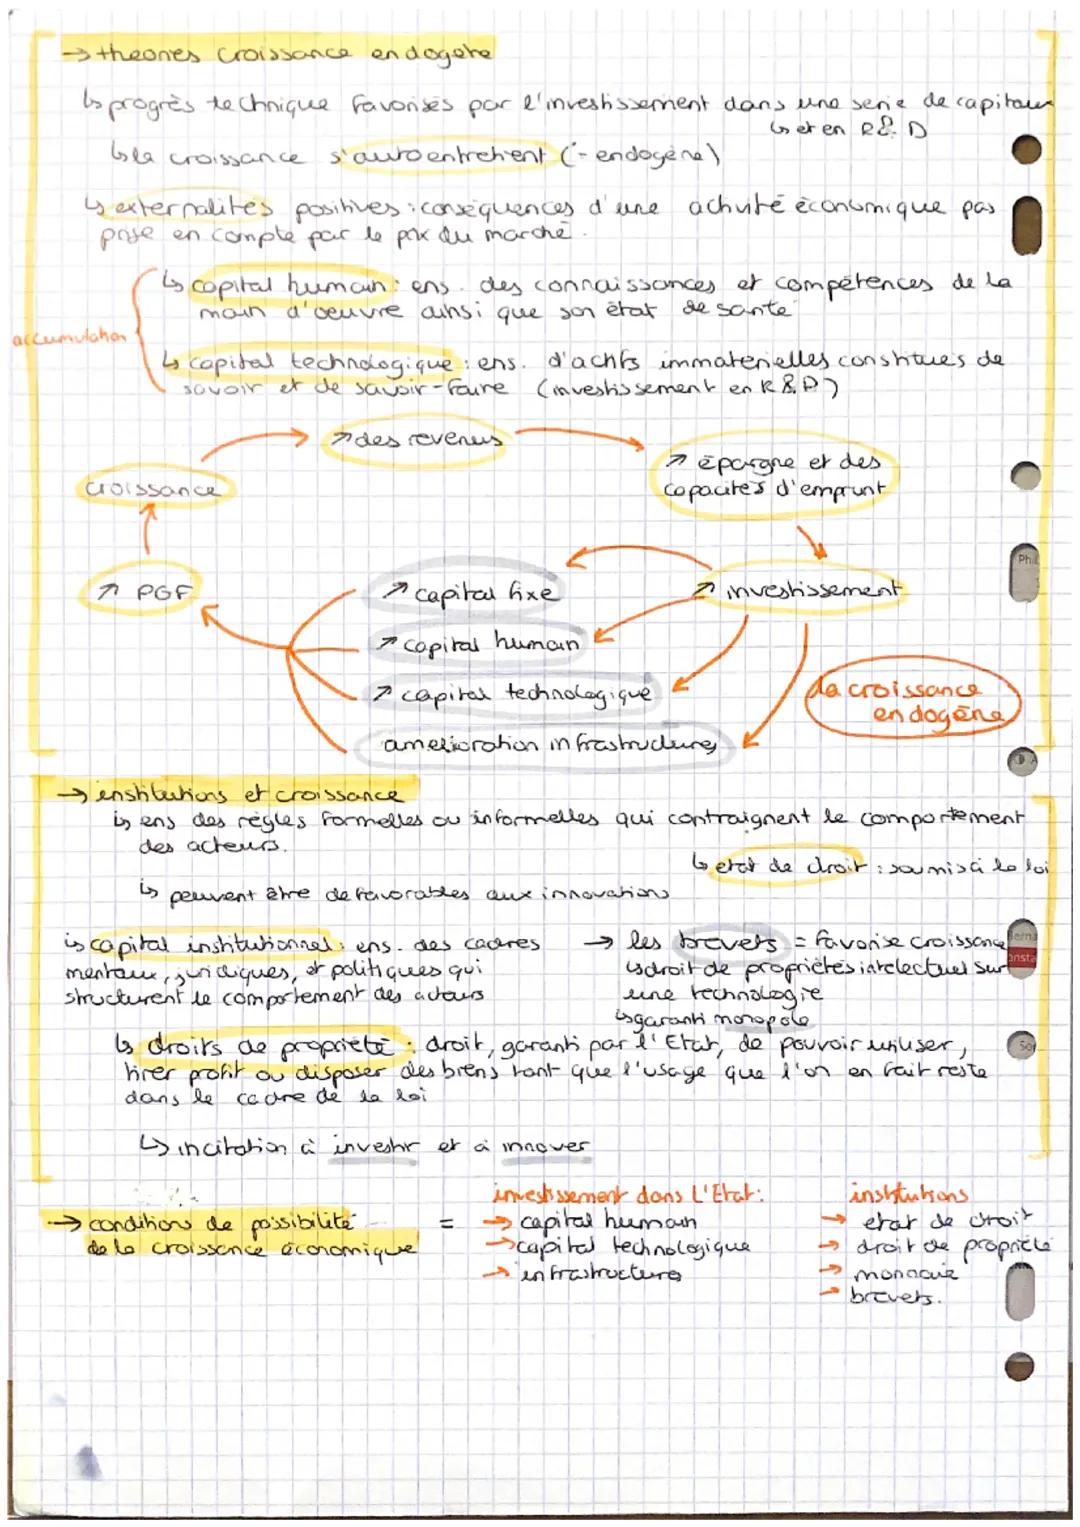 → theories croissance endogène
↳ progrès technique favorisés par l'investissement dans une serie de capitaux
↳ et en R&D
↳ la croissance s'autoentretient (- endogène)
↳ externalités positives : conséquences d'une activité économique pas
prise en compte par le prix du marché.
↳ capital humain : ens. des connaissances et compétences de la
main d'oeuvre ainsi que son état de santé
accumulation
↳ capital technologique : ens. d'actifs immaterielles constitués de
savoir et de savoir-faire (investissement en R&D)
↗ des revenus
↗ épargne et des
capacités d'emprunt
croissance
↗ PGF
↗ capital fixe
↗ investissement
↗ capital humain
↗ capital technologique
la croissance
endogène
amelioration infrastructures
→ institutions et croissance
↳ ens des règles formelles ou informelles qui contraignent le comportement
des acteurs.
↳ etat de droit : soumis à la loi
↳ peuvent être defavorables aux innovations
↳ capital institutionnel : ens. des cadres
mentaux, juridiques, et politiques qui
structurent le comportement des acteurs
→ les brevets = favorise croissance
↳ droit de propriétés intelectuel sur
une technologie
↳ garanti monopole
↳ droits de propriété : droit, garanti par l'Etat, de pouvoir utiluser,
tirer profit ou disposer des biens tant que l'usage que l'on en fait reste
dans le cadre de la loi
↳ incitation à investir et à innover
→ conditions de possibilité
de la croissance économique
=
investissement dans l'Etat:
→ capital humain
→ capital technologique
→ infrastructures
institutions
→ etat de droit
→ droit de propriété
→ monnaie
→ brevets.